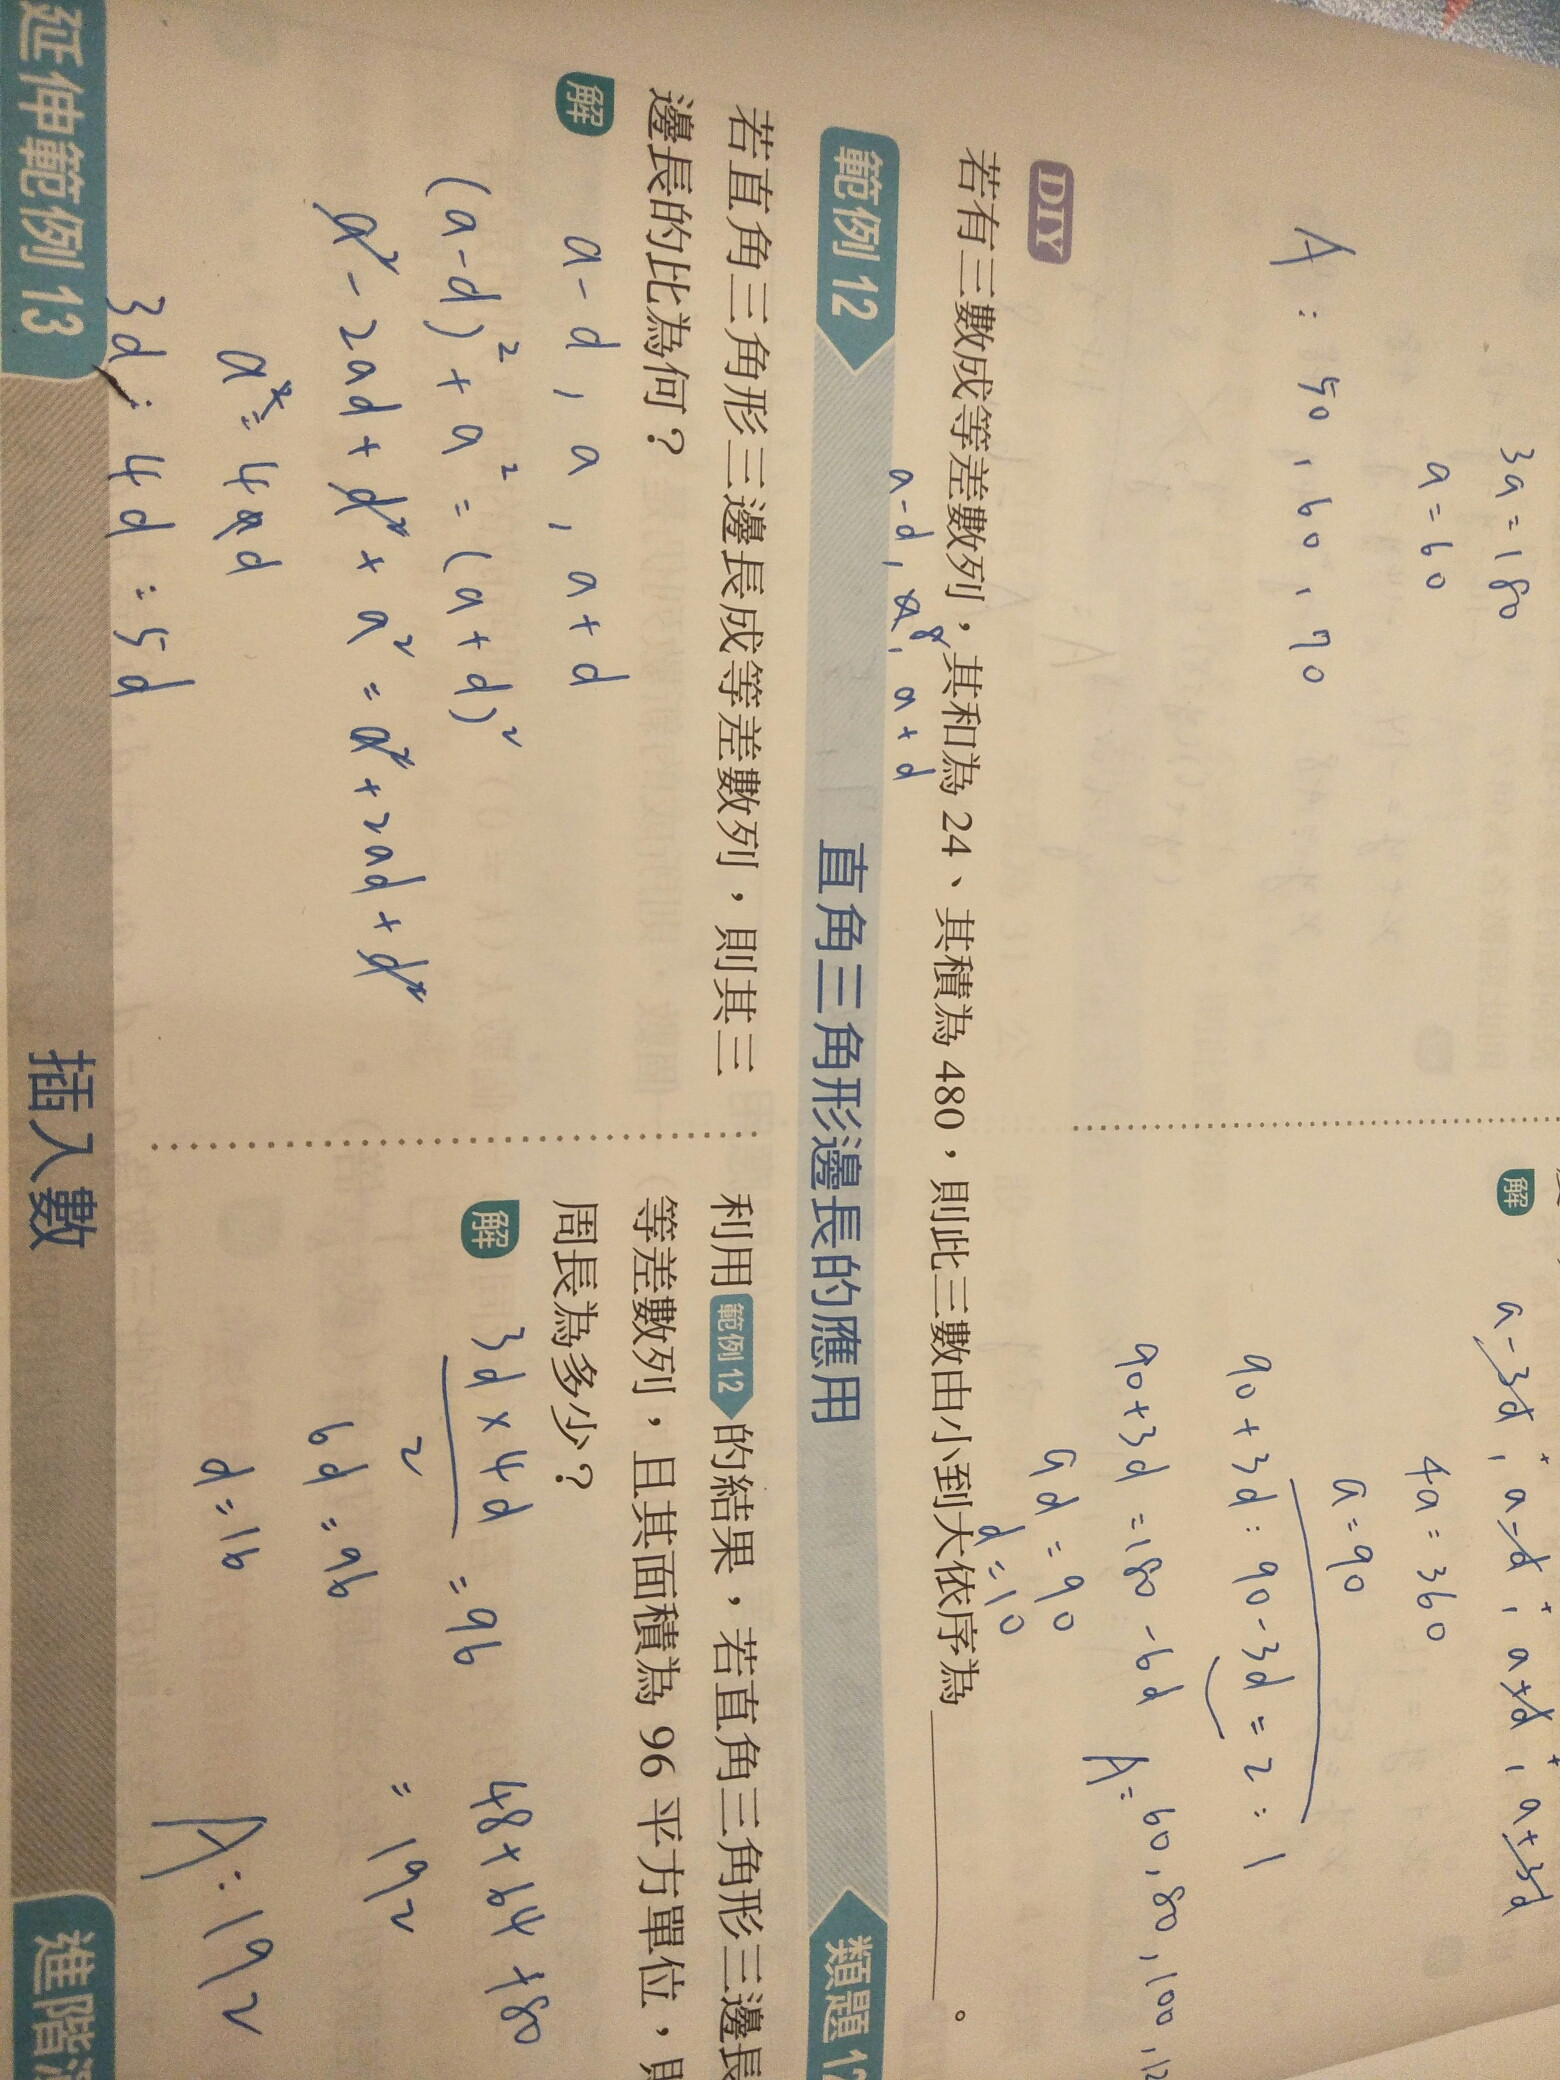 3a=180
a=60
A:50,60,70
解
a-3d,a-d,a+d,a+3d
4a=360
a=90
90+3d:90-3d=2:1
90+3d=180-6d
9d=90
d=10
A=60,80,100,12
DIY
若有三數成等差數列，其和為24、其積為480，則此三數由小到大依序為____。
a-d,8,a+d
範例12 直角三角形邊長的應用
若直角三角形三邊長成等差數列，則其三
邊長的比為何？
解
a-d,a,a+d
(a-d)²+a²=(a+d)²
a²-2ad+d²+a²=a²+2ad+d²
a²=4ad
3d:4d:5d
類題12
利用範例12的結果，若直角三角形三邊長
等差數列，且其面積為96平方單位，則
周長為多少？
解
3d×4d/2=96
6d=96
d=16
48+64+80
=192
A:192
延伸範例13 插入數
進階